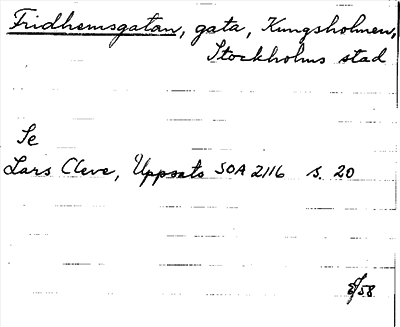 Fridhemsgatan, gata, Kungsholmen,
Stockholms stad
Se
Lars Cleve, Uppsats SOA 2116 s. 20
/58